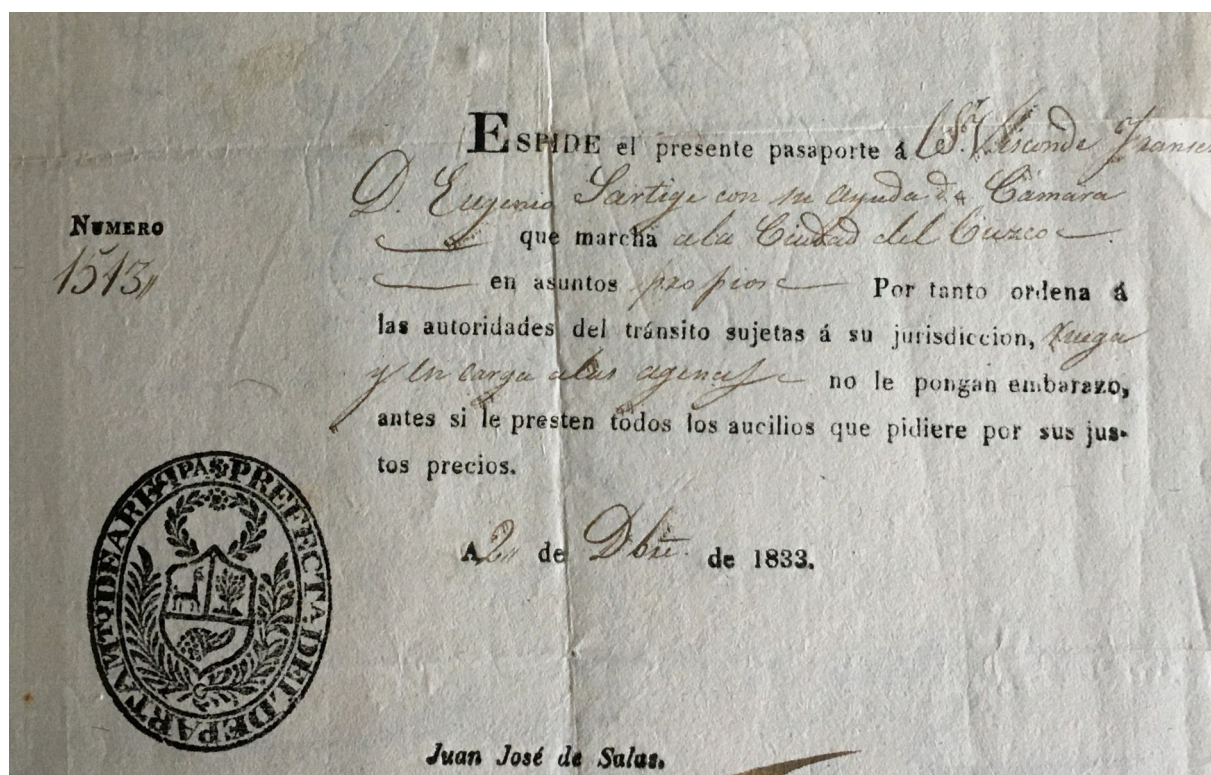 ESPIDE el presente pasaporte á el Sr. Visconde Franses
D. Eugenio Sartige con su ayuda de Cámara
que marcha a la Ciudad del Cuzco
en asuntos propios Por tanto ordena á
las autoridades del tránsito sujetas á su jurisdiccion, ruega
y en carga a las agenas no le pongan embarazo,
antes si le presten todos los aucilios que pidiere por sus jus-
tos precios.
NUMERO
1513
A 2 de Dbre. de 1833.
PREFECTA DEL DEPARTAMTO DE AREQUIPA
Juan José de Salas.